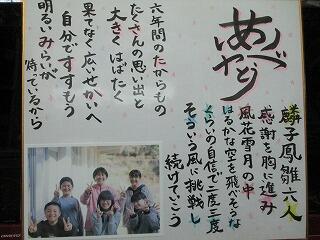 あべ
やとう
麟子鳳雛六人
感謝を胸に進み
風花雪月の中
はるかな空を飛べそうな
くらいの自信で二度三度
そういう風に挑戦し
続けていこう
六年間のたからもの
たくさんの思い出と
大きくはばたく
果てなく広いせかいへ
自分ですすもう
明るいみらいが
待っているから